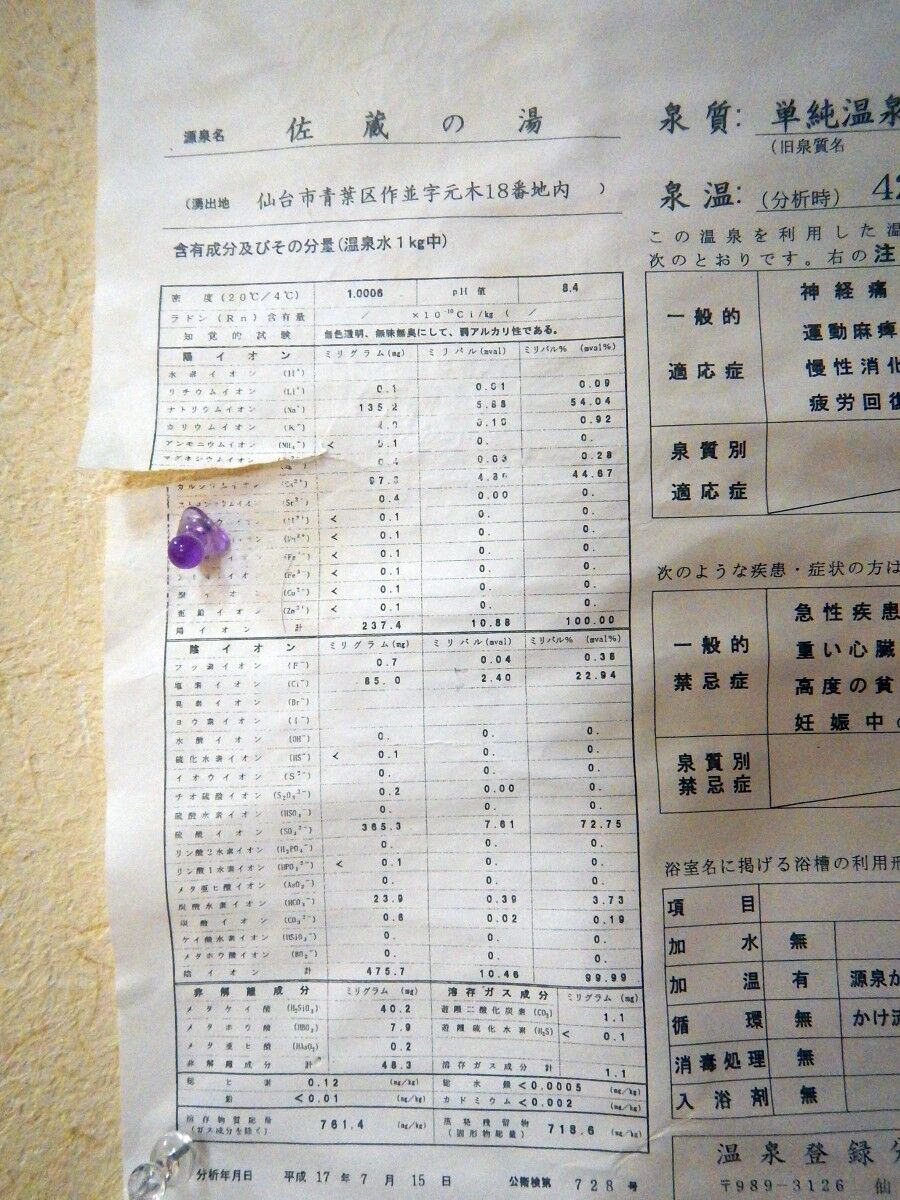 源泉名 佐蔵の湯
(湧出地 仙台市青葉区作並字元木18番地内 )
含有成分及びその分量(温泉水1kg中)
密度(20℃/4℃) 1.0006 pH値 8.4
ラドン(Rn)含有量 / ×10⁻¹⁰Ci/kg ( /
知覚的試験 無色透明、無味無臭にして、弱アルカリ性である。
陽イオン ミリグラム(mg) ミリバル(mval) ミリバル% (mval%)
水素イオン (H⁺)
リチウムイオン (Li⁺) 0.1 0.01 0.09
ナトリウムイオン (Na⁺) 135.2 5.88 54.04
カリウムイオン (K⁺) 0.10 0.92
アンモニウムイオン (NH₄⁺) < 0.1 0. 0.
マグネシウムイオン 0.4 0.03 0.28
カルシウムイオン (Ca²⁺) 97.3 4.86 44.67
(Sr²⁺) 0.4 0.00 0.
< 0.1 0. 0.
< 0.1 0. 0.
< 0.1 0. 0.
イオン < 0.1 0. 0.
銅イオン (Cu²⁺) < 0.1 0. 0.
亜鉛イオン (Zn²⁺) < 0.1 0. 0.
陽イオン計 237.4 10.88 100.00
陰イオン ミリグラム(mg) ミリバル(mval) ミリバル% (mval%)
フッ素イオン (F⁻) 0.7 0.04 0.38
塩素イオン (Cl⁻) 85.0 2.40 22.94
臭素イオン (Br⁻)
ヨウ素イオン (I⁻)
水酸イオン (OH⁻) 0. 0. 0.
硫化水素イオン (HS⁻) < 0.1 0. 0.
イオウイオン (S²⁻) 0. 0. 0.
チオ硫酸イオン (S₂O₃²⁻) 0.2 0.00 0.
硫酸水素イオン (HSO₄⁻) 0. 0. 0.
硫酸イオン (SO₄²⁻) 365.3 7.61 72.75
リン酸2水素イオン (H₂PO₄⁻) 0. 0. 0.
リン酸1水素イオン (HPO₄²⁻) < 0.1 0. 0.
メタ亜ヒ酸イオン (AsO₂⁻) 0. 0. 0.
炭酸水素イオン (HCO₃⁻) 23.9 0.39 3.73
炭酸イオン (CO₃²⁻) 0.6 0.02 0.19
ケイ酸水素イオン (HSiO₃⁻) 0. 0. 0.
メタホウ酸イオン (BO₂⁻) 0. 0. 0.
陰イオン計 475.7 10.46 99.99
非解離成分 ミリグラム (mg) 溶存ガス成分 ミリグラム (mg)
メタケイ酸 (H₂SiO₃) 40.2 遊離二酸化炭素 (CO₂) 1.1
メタホウ酸 (HBO₂) 7.9 遊離硫化水素 (H₂S) < 0.1
メタ亜ヒ酸 (HAsO₂) 0.2
非解離成分計 48.3 溶存ガス成分計 1.1
総ヒ素 0.12 (mg/kg) 総水銀 <0.0005 (mg/kg)
鉛 <0.01 (mg/kg) カドミウム <0.002 (mg/kg)
溶存物質総量 (ガス成分を除く) 761.4 (mg/kg) 蒸発残留物 (固形物総量) 718.6 (mg/kg)
分析年月日 平成17年7月15日 公衛検第 728 号
泉質: 単純温泉
(旧泉質名
泉温: (分析時) 42
この温泉を利用した温
次のとおりです。右の注
一般的適応症 神経痛
運動麻痺
慢性消化
疲労回復
泉質別適応症
次のような疾患・症状の方は
一般的禁忌症 急性疾患
重い心臓
高度の貧
妊娠中の
泉質別禁忌症
浴室名に掲げる浴槽の利用形
項目
加水 無
加温 有 源泉か
循環 無 かけ流
消毒処理 無
入浴剤 無
温泉登録分
〒989-3126 仙